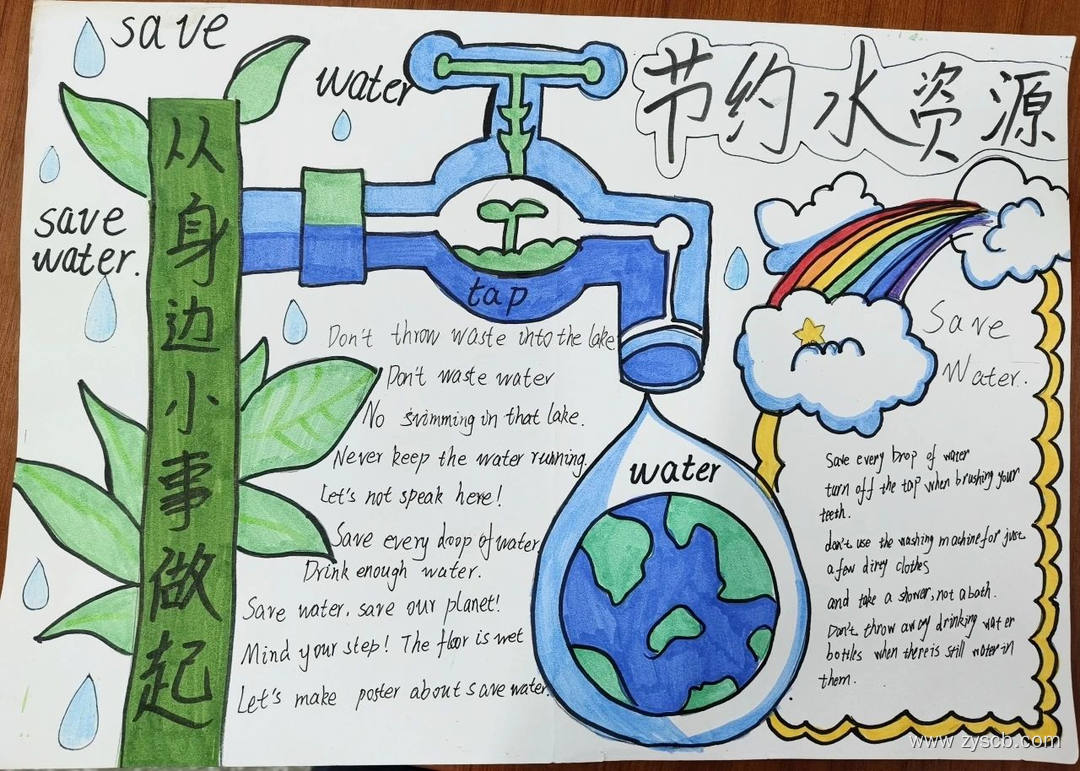 save
water
节约水资源
从身边小事做起
save
water.
tap
Don't throw waste into the lake
Don't waste water
No swimming in that lake.
Never keep the water running.
Let's not speak here!
Save every doop of water
Drink enough water.
Save water, save our planet!
Mind your step! The floor is wet
Let's make poster about save water.
water
Save
Water.
Save every brop of water
turn off the tap when brushing your
teeth.
don't use the washing machine for just
a few dirty clothes
and take a shower, not a bath.
Don't throw away drinking water
bottles when there is still water in
them.
www.zyscb.com